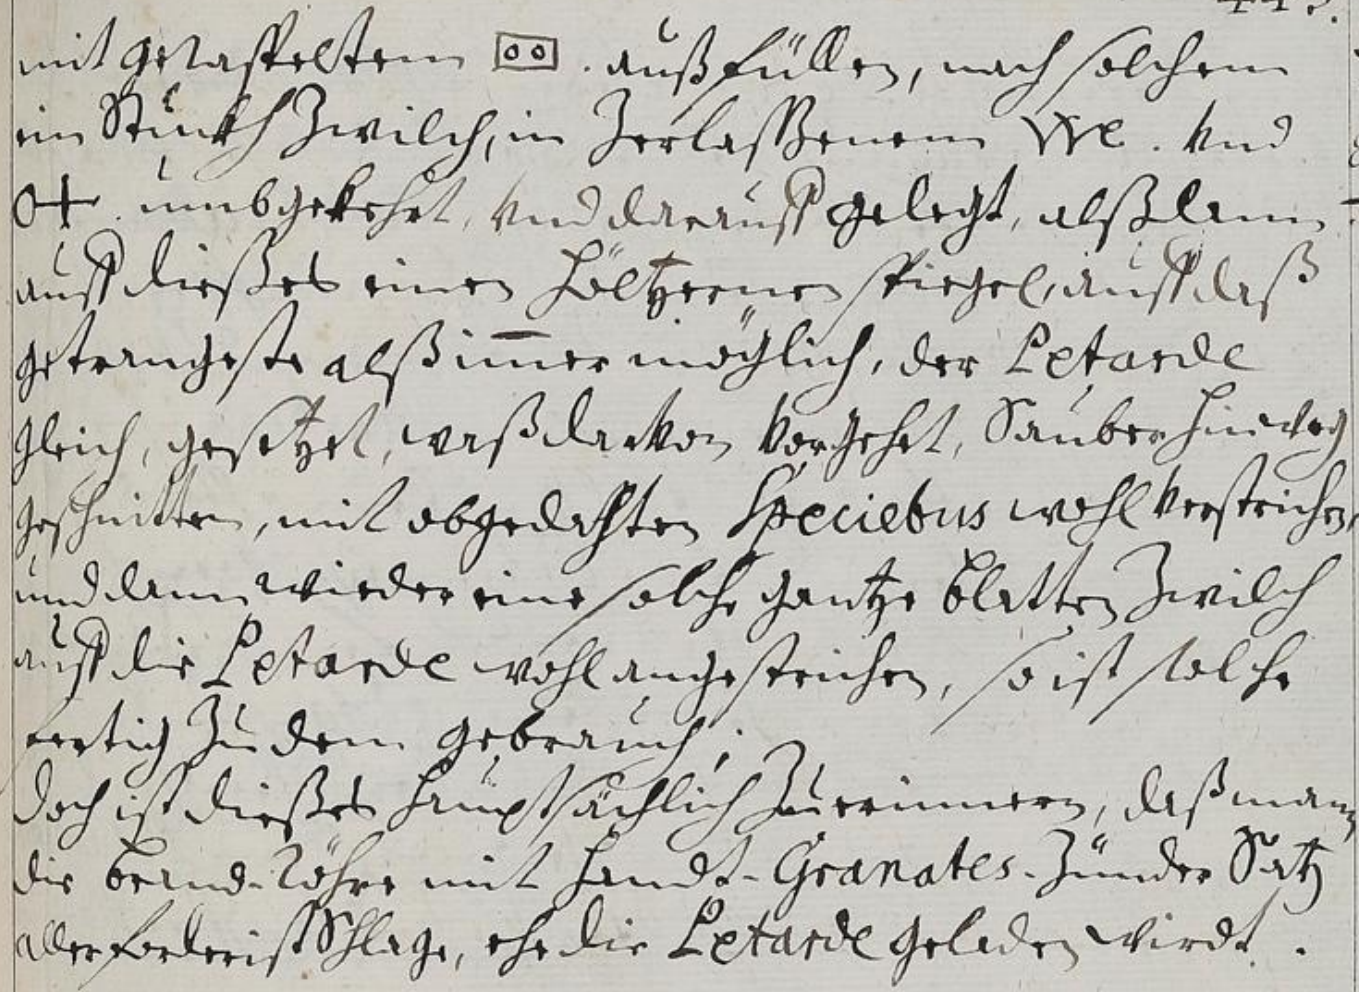 mit geraspeltem . außfüllen, nach solchem
ein Stückh Zwilch, in Zerlaßenem . Vnd
umbgekehrt, Vnd darauff gelegt, alßdann
auff dießes einen höltzernen spiegel, auff daß
getrangeste alß im̅er möglich, der Petarde
gleich, gesetzet, waß darvon Vorgehet, Sauber hinweg
geschnitten, mit obgedachten Speciebus wohl Verstrichen,
und dann wieder eine solche gantze blatten Zwilch
auff die Petarde wohl angestrichen, so ist solche
fertig Zu dem gebrauch;
Doch ist dießes hauptsächlich Zu erinnern, daß man
die brand-Röhre mit handt-Granates-Zünder Satz
allerforderist Schlage, ehe die Petarde geladen wirdt.